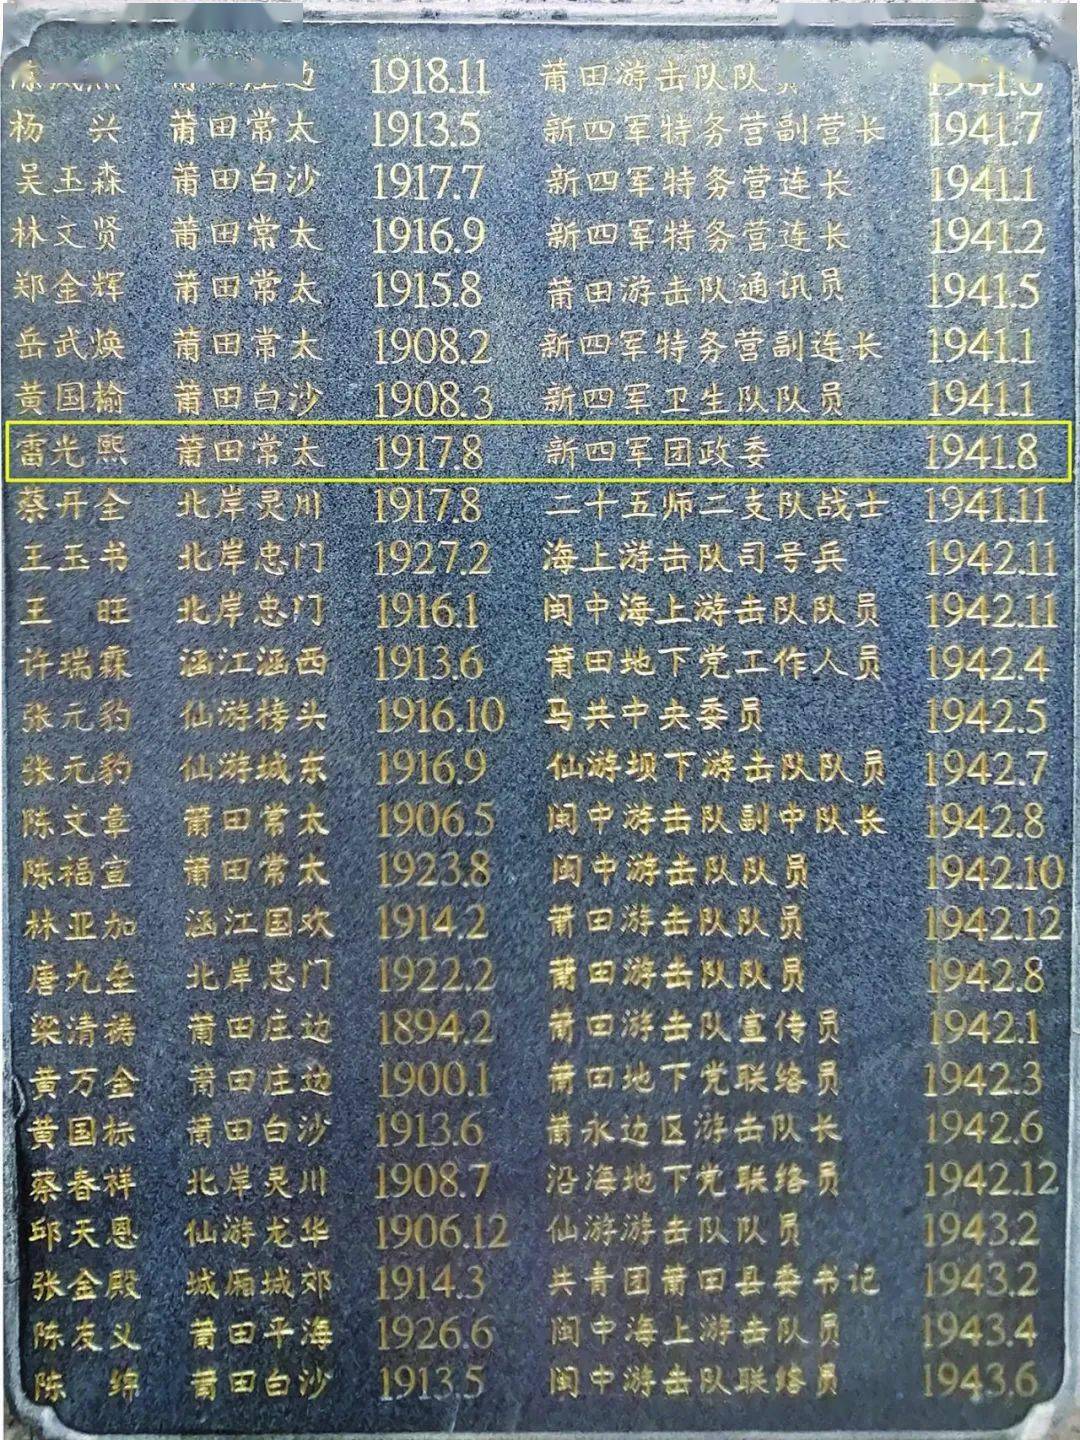 莆田庄边 1918.11 莆田游击队队员 1941.6
杨 兴 莆田常太 1913.5 新四军特务营副营长 1941.7
吴玉森 莆田白沙 1917.7 新四军特务营连长 1941.1
林文贤 莆田常太 1916.9 新四军特务营连长 1941.2
郑金辉 莆田常太 1915.8 莆田游击队通讯员 1941.5
岳武焕 莆田常太 1908.2 新四军特务营副连长 1941.1
黄国榆 莆田白沙 1908.3 新四军卫生队队员 1941.1
雷光熙 莆田常太 1917.8 新四军团政委 1941.8
蔡丹全 北岸灵川 1917.8 二十五师二支队战士 1941.11
王玉书 北岸忠门 1927.2 海上游击队司号兵 1942.11
王 旺 北岸忠门 1916.1 闽中海上游击队队员 1942.11
许瑞霖 涵江涵西 1913.6 莆田地下党工作人员 1942.4
张元豹 仙游榜头 1916.10 马共中央委员 1942.5
张元豹 仙游城东 1916.9 仙游坝下游击队队员 1942.7
陈文章 莆田常太 1906.5 闽中游击队副中队长 1942.8
陈福宣 莆田常太 1923.8 闽中游击队队员 1942.10
林亚加 涵江国欢 1914.2 莆田游击队队员 1942.12
唐九垒 北岸忠门 1922.2 莆田游击队队员 1942.8
梁清祷 莆田庄边 1894.2 莆田游击队宣传员 1942.1
黄万金 莆田庄边 1900.1 莆田地下党联络员 1942.3
黄国标 莆田白沙 1913.6 莆永边区游击队长 1942.6
蔡春祥 北岸灵川 1908.7 沿海地下党联络员 1942.12
邱天恩 仙游龙华 1906.12 仙游游击队队员 1943.2
张金殿 城厢城郊 1914.3 共青团莆田县委书记 1943.2
陈友义 莆田平海 1926.6 闽中海上游击队员 1943.4
陈 绵 莆田白沙 1913.5 闽中游击队联络员 1943.6